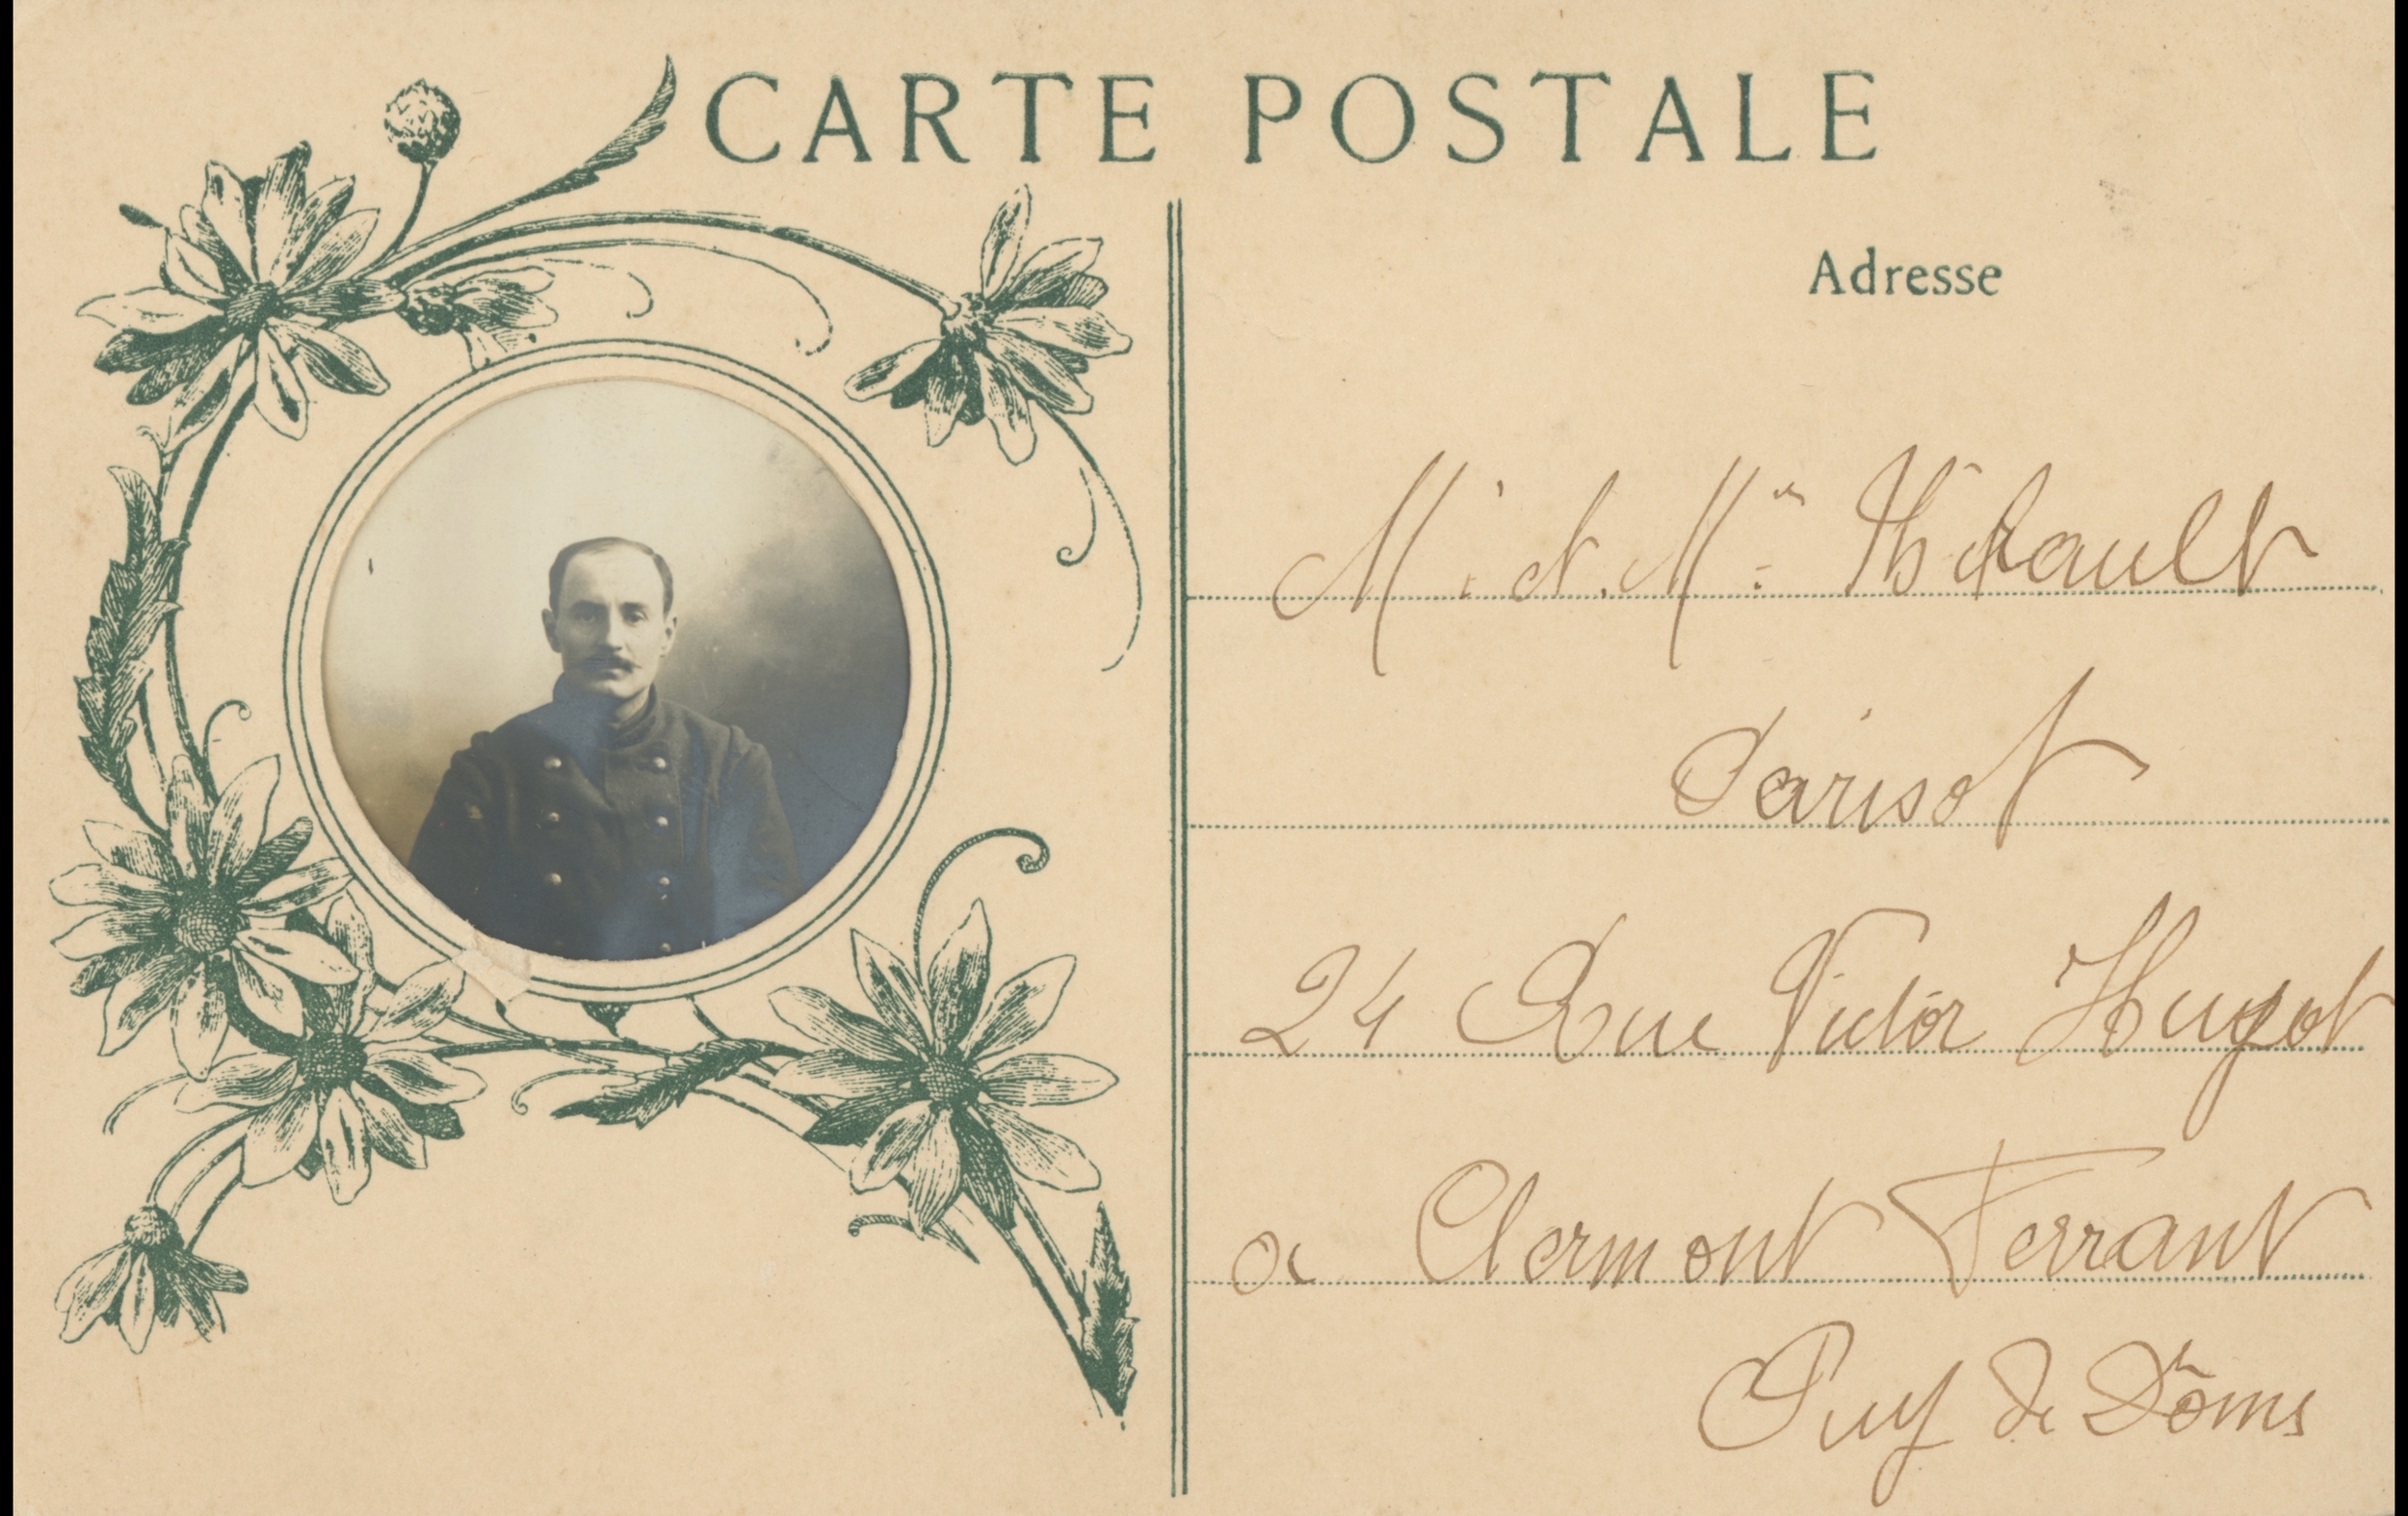 CARTE POSTALE
Adresse
M.r et M.me Thérault
Parisot
24 Rue Victor Hugot
a Clermont Ferrant
Puy de Dôms